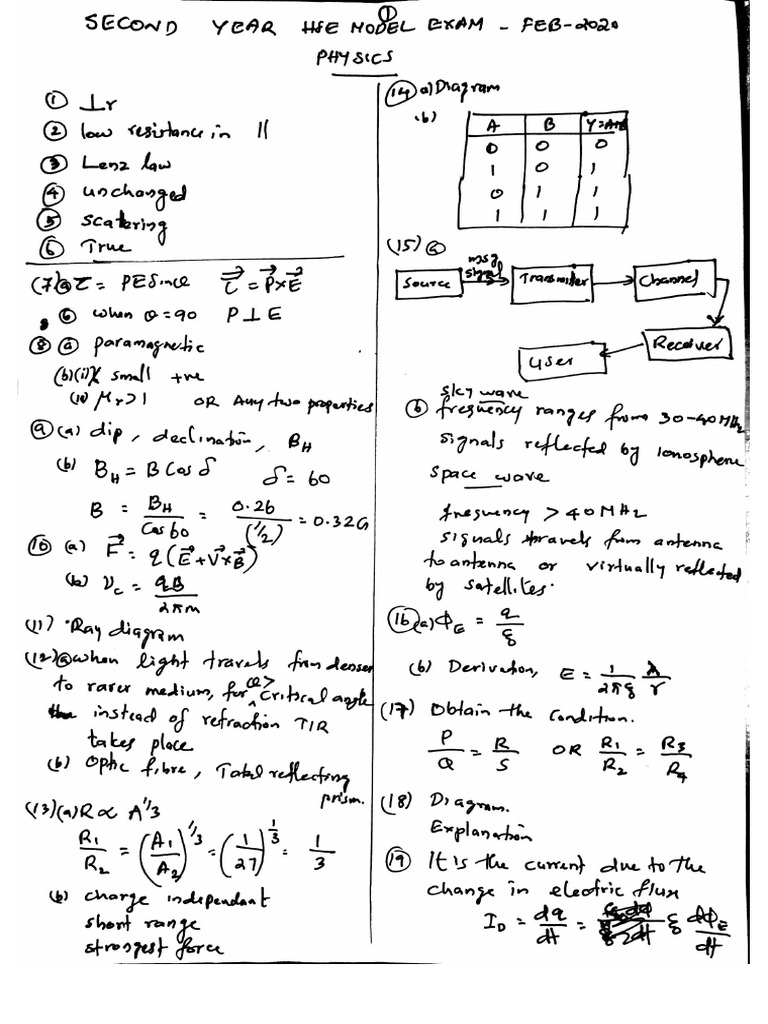 ①
SECOND YEAR HSE MODEL EXAM - FEB-2020
PHYSICS
① ⊥r
② low resistance in ||
③ Lenz law
④ unchanged
⑤ scatering
⑥ True
(7) ⓐ τ = PE Sinθ τ⃗ = P⃗×E⃗
ⓑ when θ=90 P⊥E
⑧ ⓐ paramagnetic
(b)(i) χ small +ve
(ii) μr>1 OR Any two properties
⑨ (a) dip, declination, BH
(b) BH = B Cos δ δ = 60
B = BH/Cos 60 = 0.26/(1/2) = 0.32G
⑩ (a) F⃗ = q(E⃗+V⃗×B⃗)
(b) νc = qB/2πm
(11) Ray diagram
(12) ⓐ when light travels from denser
to rarer medium, for θ> critical angle
instead of refraction TIR
takes place
(b) Optic fibre, Total reflecting
prism.
(13) (a) R ∝ A^1/3
R1/R2 = (A1/A2)^1/3 = (1/27)^1/3 = 1/3
(b) charge independant
short range
strongest force
⑭ a) Diagram
b)
A B Y=A+B
0 0 0
1 0 1
0 1 1
1 1 1
(15) ⓐ
Source msg signal Transmitter Channel
User Receiver
sky wave
ⓑ frequency ranges from 30-40MHz
signals reflected by Ionosphere
space wave
frequency > 40MHz
signals travels from antenna
to antenna or virtually reflected
by satellites.
⑯ (a) ΦE = q/ε0
(b) Derivation, E = 1/2πε0 λ/r
(17) Obtain the condition.
P/Q = R/S OR R1/R2 = R3/R4
(18) Diagram.
Explanation
⑲ It is the current due to the
change in electric flux
ID = dq/dt = ε0 dΦE/dt